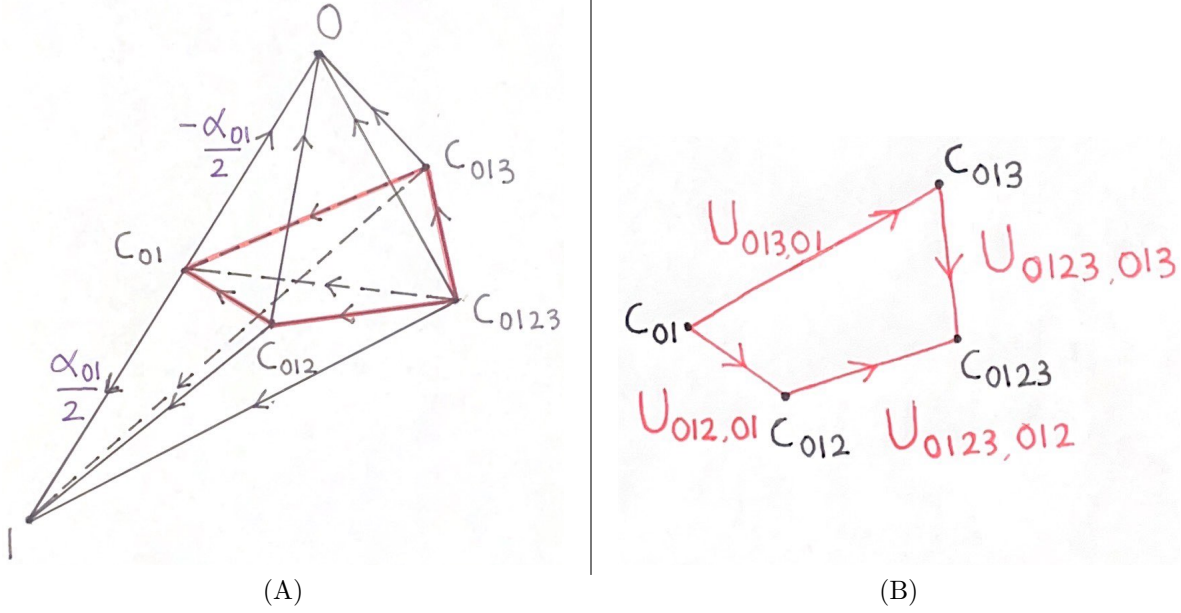 0
-α₀₁/2
C₀₁₃
C₀₁
C₀₁₂₃
C₀₁₂
α₀₁/2
1
(A)
C₀₁₃
U₀₁₃,₀₁
U₀₁₂₃,₀₁₃
C₀₁
C₀₁₂₃
U₀₁₂,₀₁
C₀₁₂
U₀₁₂₃,₀₁₂
(B)